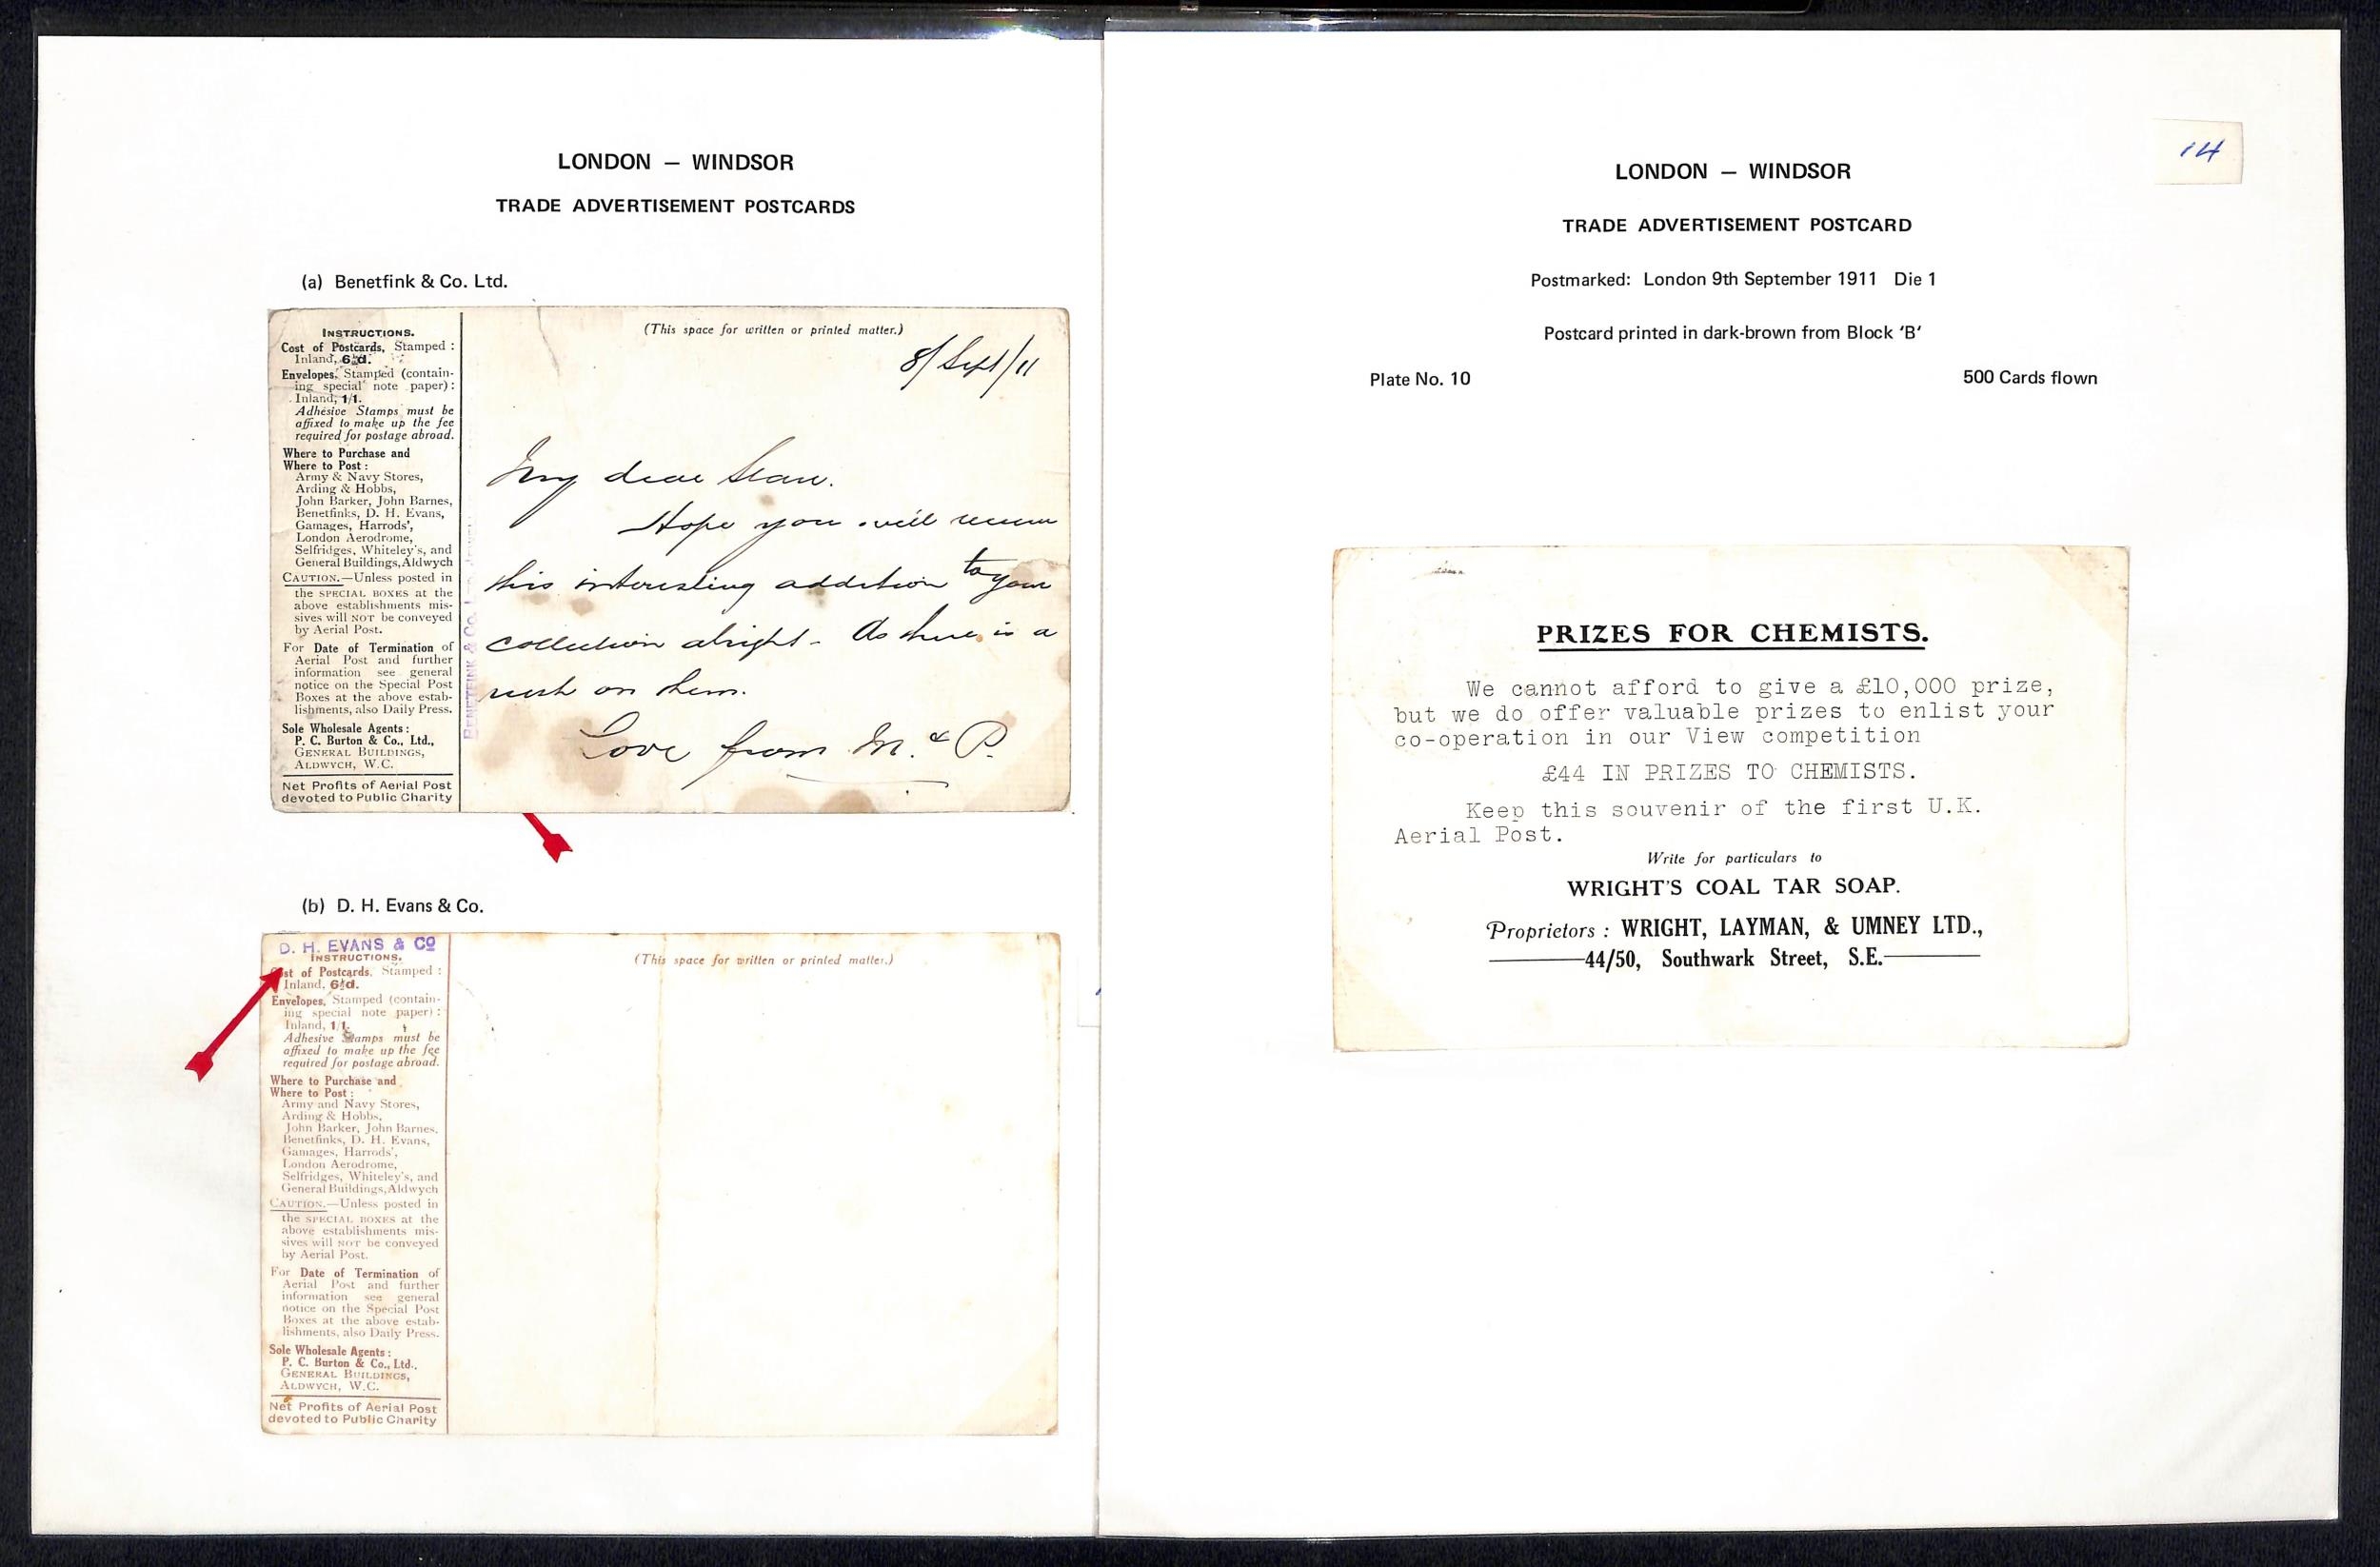 LONDON — WINDSOR
TRADE ADVERTISEMENT POSTCARDS
(a) Benetfink & Co. Ltd.
INSTRUCTIONS.
Cost of Postcards, Stamped :
Inland, 6½d.
Envelopes, Stamped (contain-
ing special note paper) :
Inland, 1/1.
Adhesive Stamps must be
affixed to make up the fee
required for postage abroad.
Where to Purchase and
Where to Post :
Army & Navy Stores,
Arding & Hobbs,
John Barker, John Barnes,
Benetfinks, D. H. Evans,
Gamages, Harrods',
London Aerodrome,
Selfridges, Whiteley's, and
General Buildings, Aldwych
CAUTION.—Unless posted in
the SPECIAL BOXES at the
above establishments mis-
sives will NOT be conveyed
by Aerial Post.
For Date of Termination of
Aerial Post and further
information see general
notice on the Special Post
Boxes at the above estab-
lishments, also Daily Press.
Sole Wholesale Agents :
P. C. Burton & Co., Ltd.,
GENERAL BUILDINGS,
ALDWYCH, W.C.
Net Profits of Aerial Post
devoted to Public Charity
BENETFINK & Co.
(This space for written or printed matter.)
8/Sept/11
My dear
Hope you will receive
this interesting addition to your
collection alright - As there is a
rush on them.
Love from M. & P.
(b) D. H. Evans & Co.
D. H. EVANS & Co
INSTRUCTIONS.
Cost of Postcards, Stamped :
Inland, 6½d.
Envelopes, Stamped (contain-
ing special note paper) :
Inland, 1/1.
Adhesive Stamps must be
affixed to make up the fee
required for postage abroad.
Where to Purchase and
Where to Post :
Army and Navy Stores,
Arding & Hobbs,
John Barker, John Barnes,
Benetfinks, D. H. Evans,
Gamages, Harrods',
London Aerodrome,
Selfridges, Whiteley's, and
General Buildings, Aldwych
CAUTION.—Unless posted in
the SPECIAL BOXES at the
above establishments mis-
sives will NOT be conveyed
by Aerial Post.
For Date of Termination of
Aerial Post and further
information see general
notice on the Special Post
Boxes at the above estab-
lishments, also Daily Press.
Sole Wholesale Agents :
P. C. Burton & Co., Ltd.,
GENERAL BUILDINGS,
ALDWYCH, W.C.
Net Profits of Aerial Post
devoted to Public Charity
(This space for written or printed matter.)
14
LONDON — WINDSOR
TRADE ADVERTISEMENT POSTCARD
Postmarked: London 9th September 1911 Die 1
Postcard printed in dark-brown from Block 'B'
Plate No. 10 500 Cards flown
PRIZES FOR CHEMISTS.
We cannot afford to give a £10,000 prize,
but we do offer valuable prizes to enlist your
co-operation in our View competition
£44 IN PRIZES TO CHEMISTS.
Keep this souvenir of the first U.K.
Aerial Post.
Write for particulars to
WRIGHT'S COAL TAR SOAP.
Proprietors : WRIGHT, LAYMAN, & UMNEY LTD.,
44/50, Southwark Street, S.E.